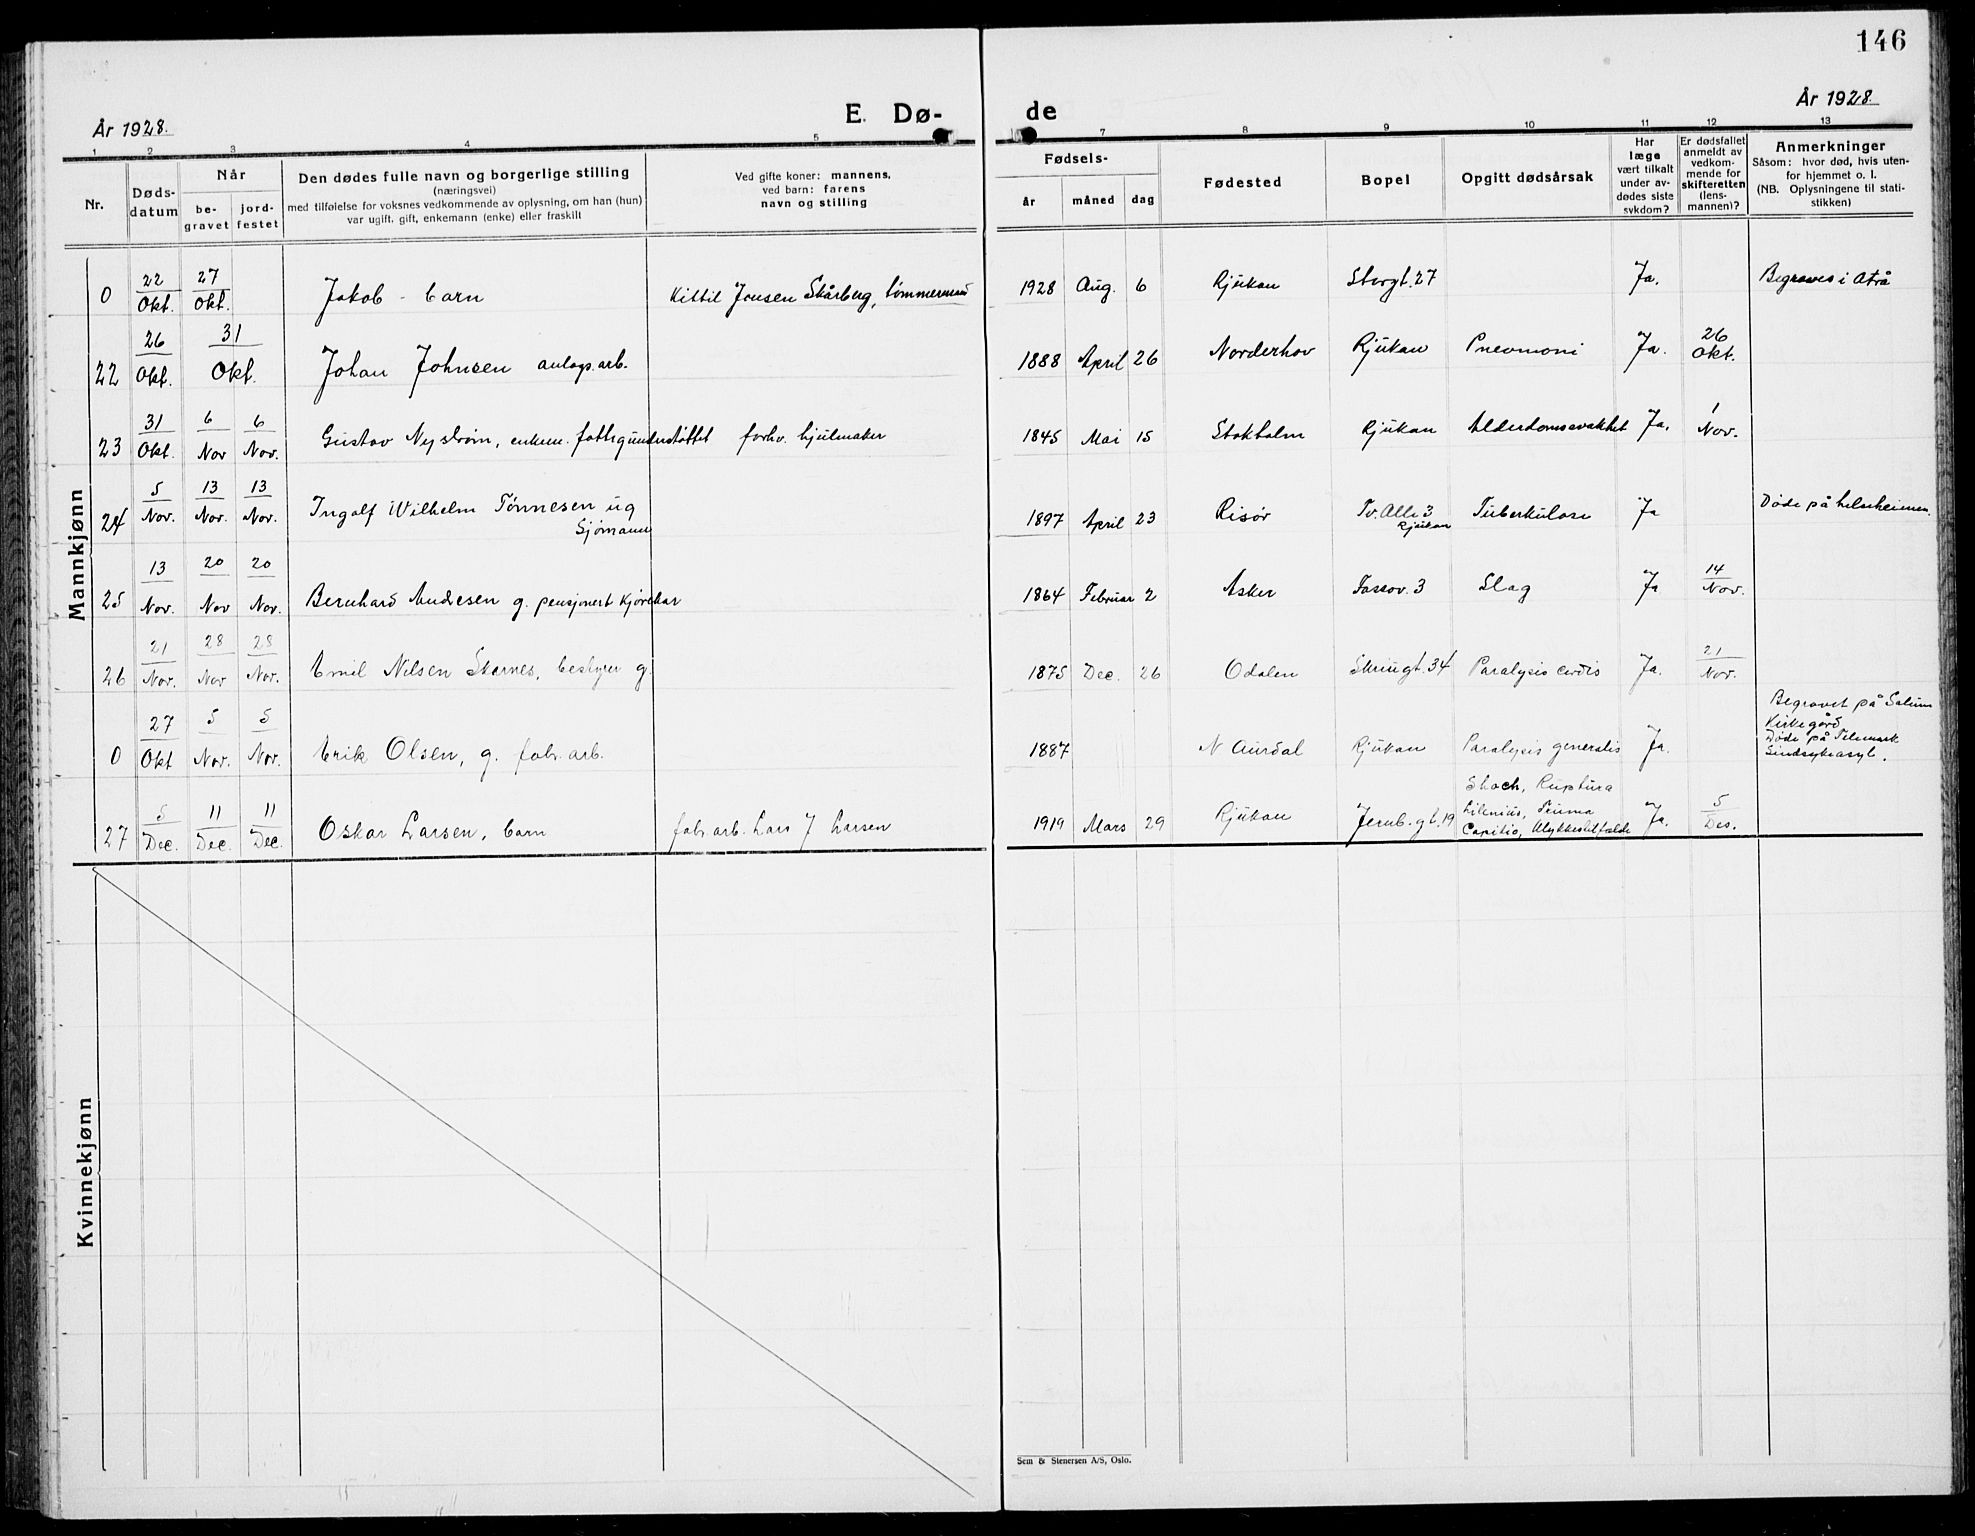 146
År 1928.
E. Dø-
de
År 1928.
1 2 3 4 5 7 8 9 10 11 12 13
Nr.
Døds-
datum
Når
be-
gravet
jord-
festet
Den dødes fulle navn og borgerlige stilling
(næringsvei)
med tilføielse for voksnes vedkommende av oplysning, om han (hun)
var ugift, gift, enkemann (enke) eller fraskilt
Ved gifte koner: mannens,
ved barn: farens
navn og stilling
Fødsels-
år måned dag
Fødested
Bopel
Opgitt dødsårsak
Har
læge
vært tilkalt
under av-
dødes siste
sykdom?
Er dødsfallet
anmeldt av
vedkom-
mende for
skifteretten
(lens-
mannen)?
Anmerkninger
Såsom: hvor død, hvis uten-
for hjemmet o. l.
(NB. Oplysningene til stati-
stikken)
Mannkjønn
0 22 Okt. 27 Okt. Jakob - barn Kittil Jonsen Skårberg, tømmermand 1928 Aug. 6 Rjukan Storgt. 27 Ja. Begraves i Atrå
22 26 Okt. 31 Okt. Johan Johnsen anlegs.arb. 1888 April 26 Norderhov Rjukan Pneomoni Ja. 26 Okt.
23 31 Okt. 6 Nov 6 Nov. Gustav Nystrøm, enkem. fattigunderstøttet forhv. hjulmaker 1845 Mai 15 Stokholm Rjukan Alderdomssvakhet Ja. 1 Nov.
24 5 Nov. 13 Nov. 13 Nov. Ingolf Wilhelm Tønnesen ug
Sjømann 1897 April 23 Risør Tv. Alle 3
Rjukan Tuberkulose Ja Døde på helseheimen.
25 13 Nov. 20 Nov 20 Nov. Bernhard Andresen g. pensjonert Kjørekar 1864 Februar 2 Asker Fossov. 3 Slag Ja 14 Nov.
26 21 Nov. 28 Nov 28 Nov. Emil Nilsen Skarnes, bestyrer g. 1875 Dec. 26 Odalen Skriugt. 34 Paralysis cordis Ja. 21 Nov.
0 27 Okt 5 Nov. 5 Nov. Erik Olsen, g. fabr. arb. 1887 N Aurdal Rjukan Paralysis generalis Ja.
Begravet på Solum
Kirkegård
Døde på Telemark
Sindsykeasyl.
27 5 Dec. 11 Dec. 11 Dec. Oskar Larsen, barn fabr. arb. Lars J Larsen 1919 Mars 29 Rjukan Jernb. gt. 19
Shoch, Ruptura
Lilenius,
Capitis, Ulykkestilfælde Ja. 5 Des.
Kvinnekjønn
Sem & Stenersen A/S, Oslo.